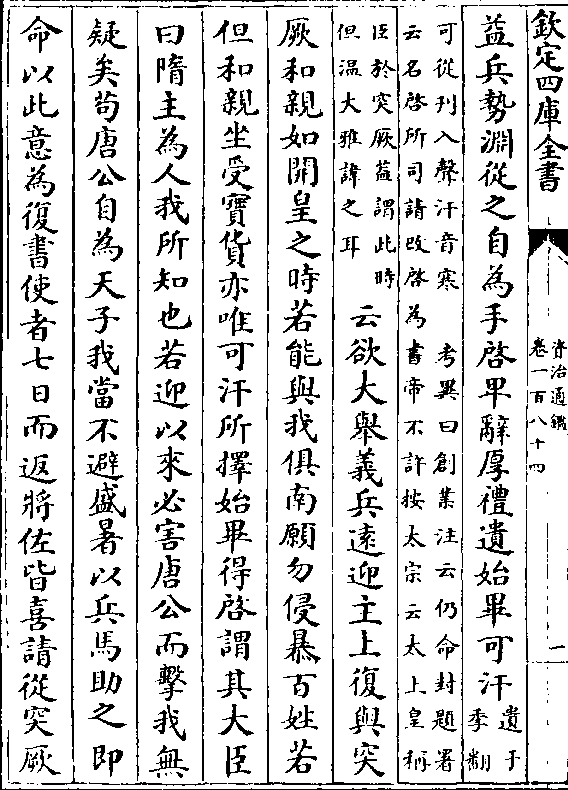 欽定四庫全書
資治通鑑
卷一百八十四
一
益兵勢淵從之自為手啓卑辭厚禮遺始畢可汗
遺于
季翻
可從刋入聲汗音寒　考異曰創業注云仍命封題署
云名啓所司請改啓為書帝不許按太宗云太上皇稱
臣於突厥葢謂此時
但温大雅諱之耳
云欲大舉義兵遠迎主上復與突
厥和親如開皇之時若能與我俱南願勿侵暴百姓若
但和親坐受寶貨亦唯可汗所擇始畢得啓謂其大臣
曰隋主為人我所知也若迎以來必害唐公而擊我無
疑矣苟唐公自為天子我當不避盛暑以兵馬助之即
命以此意為復書使者七日而返將佐皆喜請從突厥